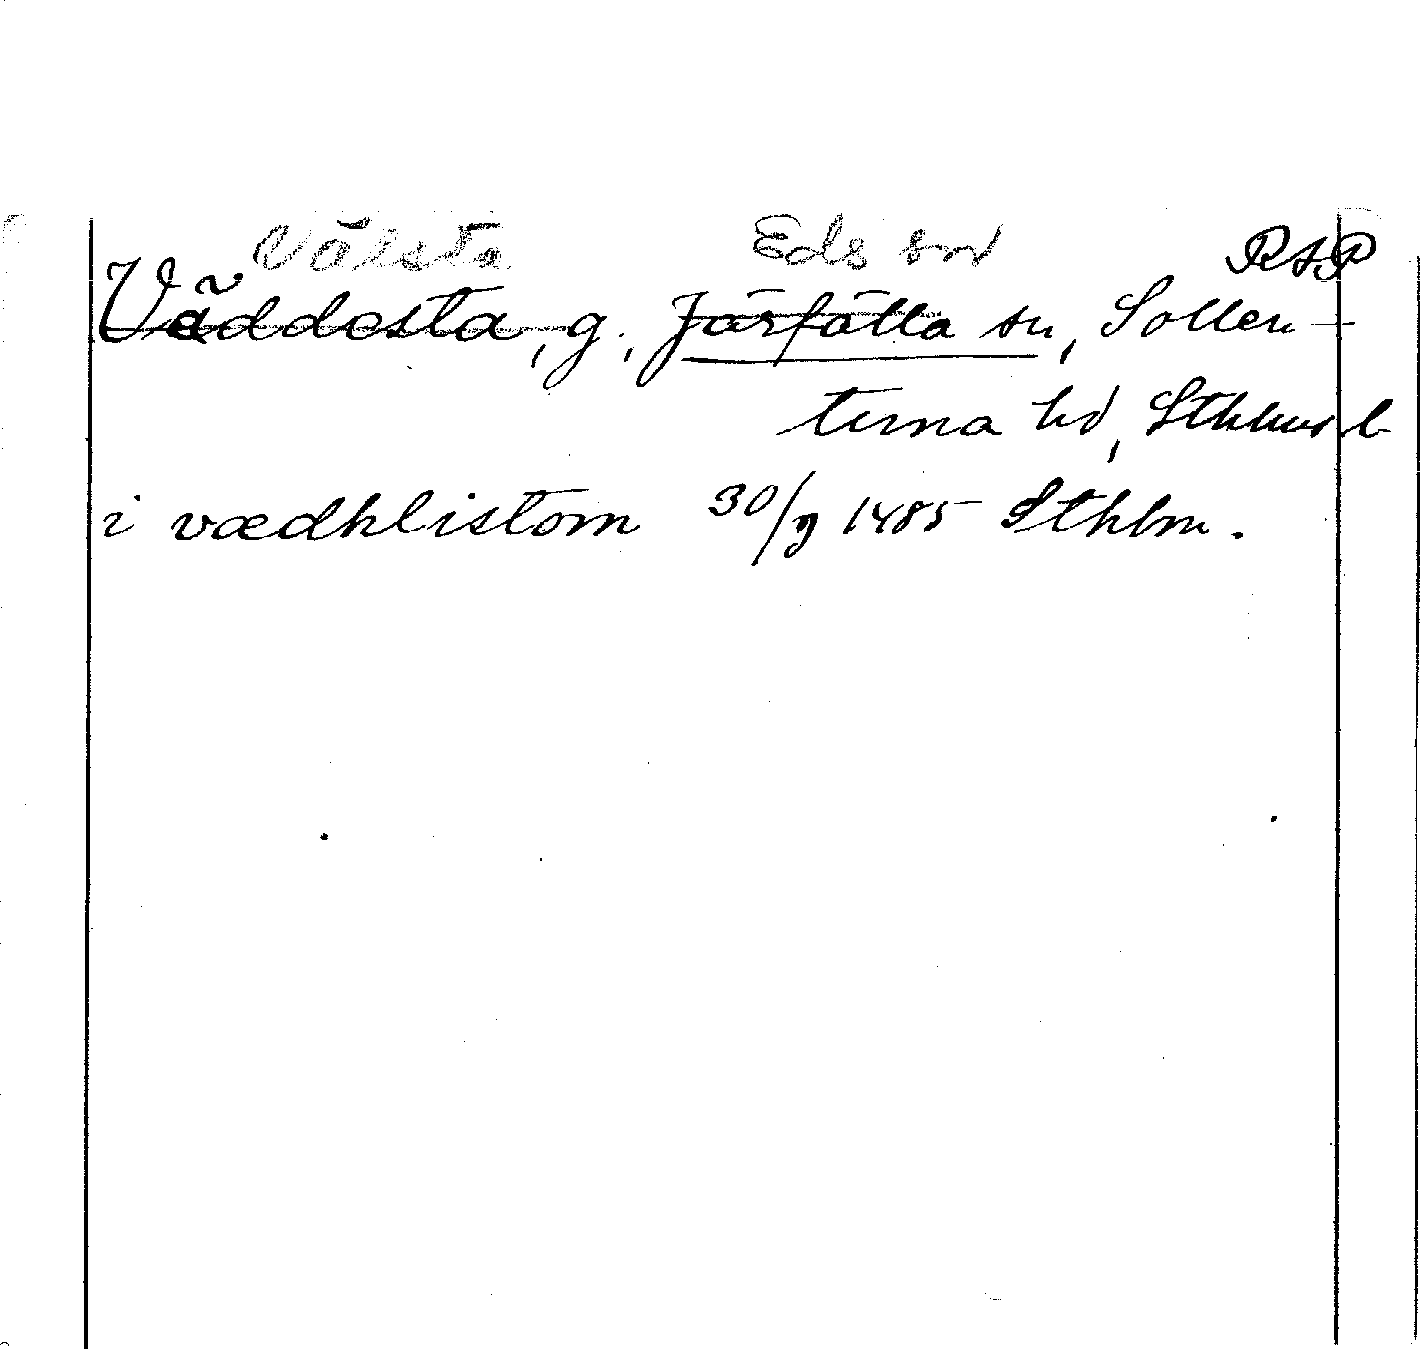 Välsta Eds sn RAP
Väddesta, g., Järfälla sn, Sollen-
tuna hd, Sthlms l
i vædhlistom 30/9 1485 Sthlm.